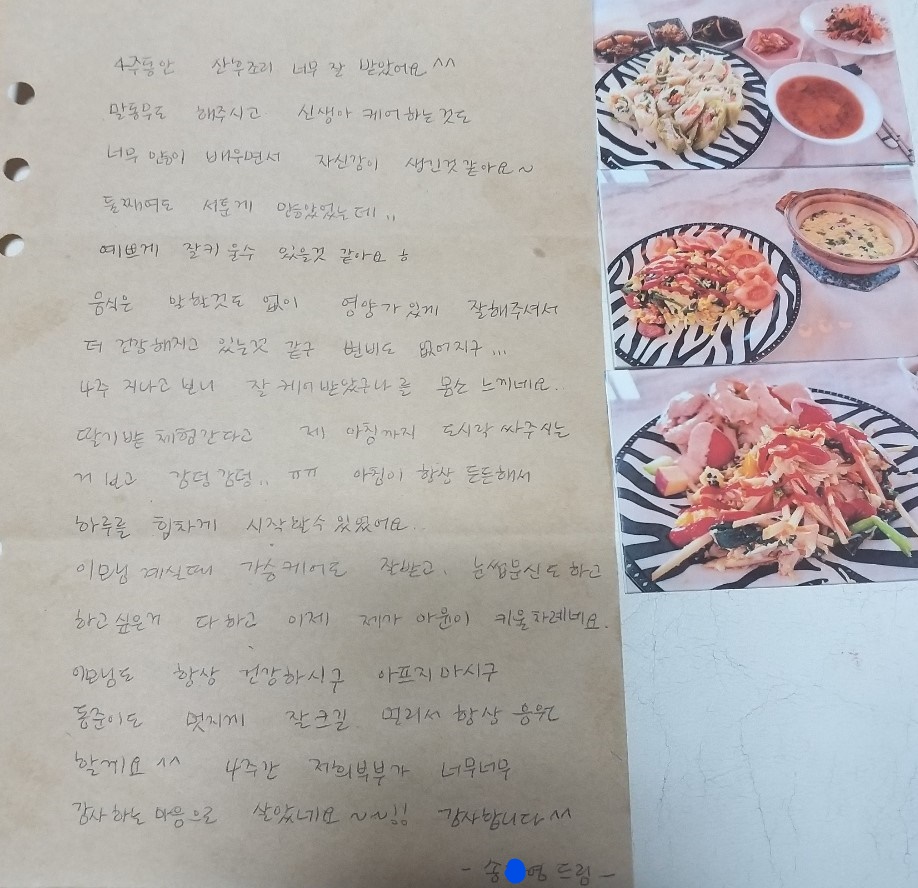 4주동안 산후조리 너무 잘 받았어요 ^^
말동무도 해주시고 신생아 케어하는것도
너무 많이 배우면서 자신감이 생긴것같아요~
둘째여도 서툰게 많았었는데..
예쁘게 잘키울수 있을것 같아요 ㅎ
음식은 말할것도 없이 영양가있게 잘해주셔서
더 건강해지고 있는것 같구 변비도 없어지구...
4주 지나고 보니 잘 케어받았구나를 몸소 느끼네요.
딸기밭 체험간다고 제 아침까지 도시락 싸주시는
거 보고 감덩감덩.. ㅠㅠ 아침이 항상 든든해서
하루를 힘차게 시작할수 있었어요..
이모님 계실때 가슴케어도 잘받고. 눈썹문신도 하고
하고싶은거 다하고 이제 제가 아윤이 키울차례네요.
이모님도 항상 건강하시구 아프지마시구
동준이도 멋지게 잘크길 멀리서 항상 응원
할게요 ^^ 4주간 저희부부가 너무너무
감사하는 마음으로 살았네요~~!! 감사합니다^^
- 송 영 드림 -